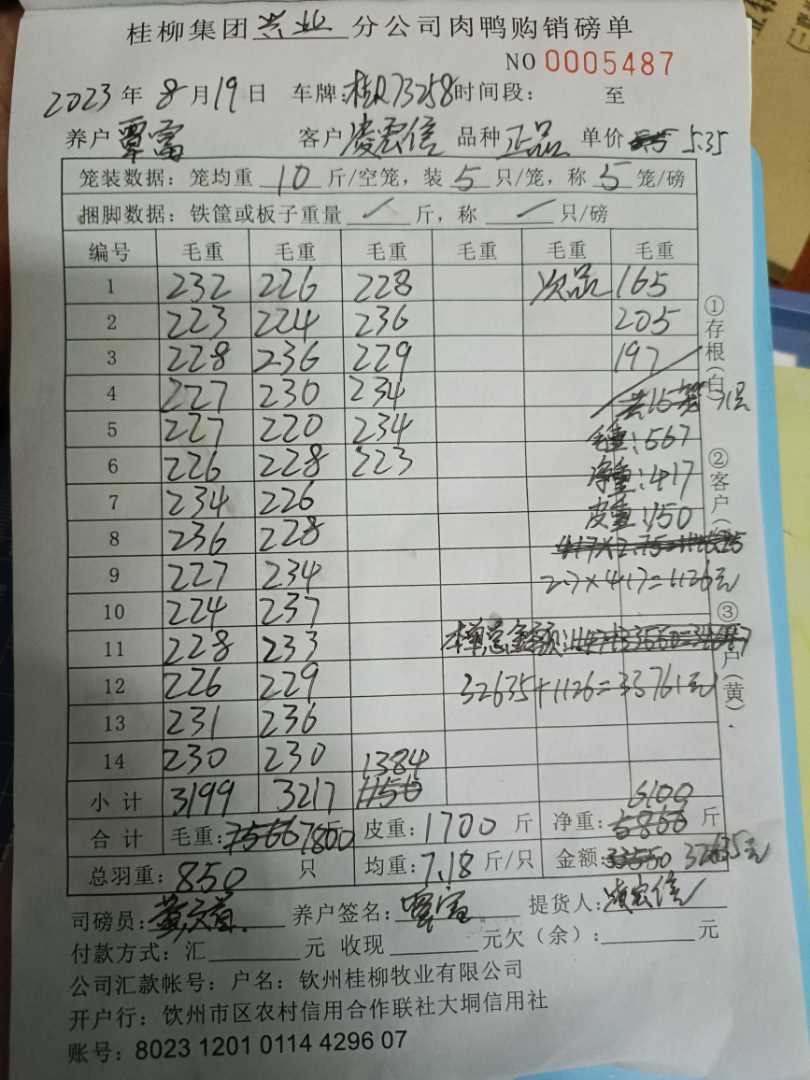 桂柳集团 兴业 分公司肉鸭购销磅单
NO 0005487
2023年 8月19日 车牌:桂R73258 时间段: 至
养户 覃富 客户 凌宏信 品种 正品 单价 5.35
笼装数据:笼均重 10 斤/空笼,装 5 只/笼,称 5 笼/磅
捆脚数据:铁筐或板子重量 / 斤,称 / 只/磅
编号 毛重 毛重 毛重 毛重 毛重 毛重
1 232 226 228 次品 165
2 223 224 236 205
3 228 236 229 197
4 227 230 234 共15笼71只
5 227 220 234 毛重:567
6 226 228 223 净重:417
7 234 226 皮重:150
8 236 228
9 227 234 2.7×417=1126元
10 224 237
11 228 233 本单总金额:
12 226 229 32635+1126=33761元
13 231 236
14 230 230 1384
小计 3199 3217 1156
合计 毛重:7566 7800 斤 皮重:1700 斤 净重:5866 6100 斤
总羽重:850 只 均重:7.18 斤/只 金额: 32635元
司磅员: 养户签名:覃富 提货人:凌宏信
付款方式:汇 元 收现 元欠(余): 元
公司汇款帐号:户名:钦州桂柳牧业有限公司
开户行:钦州市区农村信用合作联社大垌信用社
账号:8023 1201 0114 4296 07
①存根(白)
②客户(
③ 户(黄).